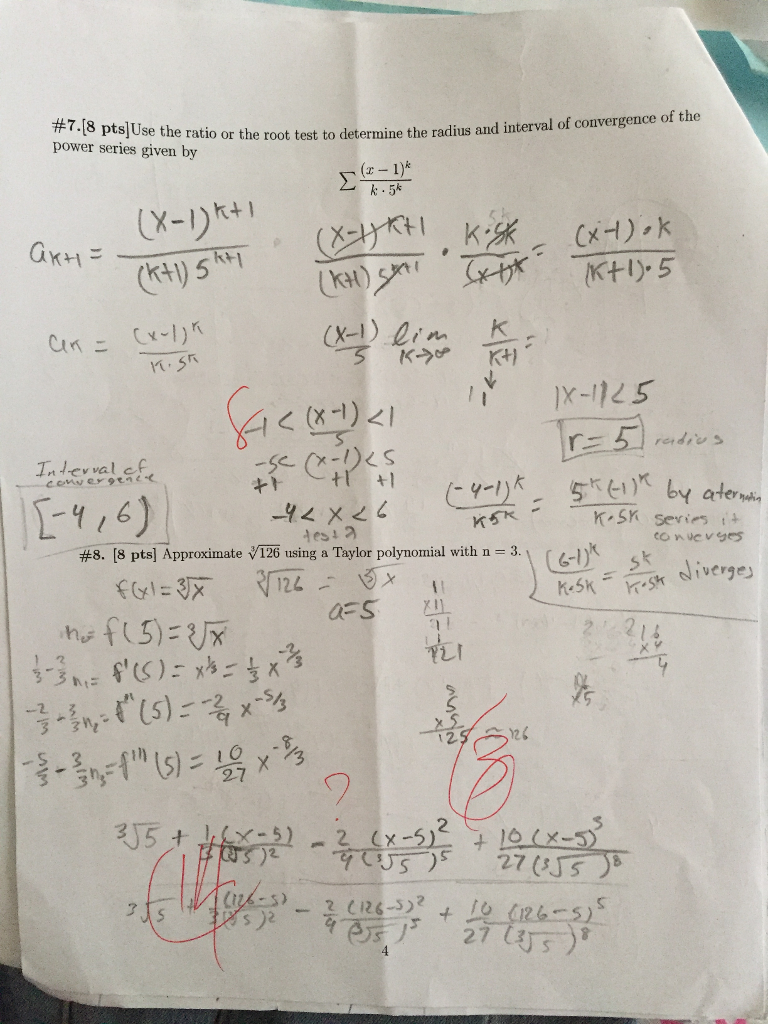 #7.[8 pts] Use the ratio or the root test to determine the radius and interval of convergence of the
power series given by
∑ (x − 1)^k / (k · 5^k)
a_{k+1} = (x-1)^{k+1} / ((k+1) 5^{k+1})
(x-1)^{k+1} / ((k+1) 5^{k+1}) · k·5^k / (x-1)^k = (x-1)·k / ((k+1)·5)
a_k = (x-1)^k / (k·5^k)
(x-1)/5 lim k→∞ k/(k+1) =
1
8
-1 < (x-1)/5 < 1
|x-1| < 5
-5 < (x-1) < 5
r = 5 radius
+1 +1 +1
Interval of
convergence
[-4, 6)
-4 < x < 6
(-4-1)^k / k5^k = 5^k(-1)^k / k·5^k by
series it
converges
(6-1)^k / k·5^k = 5^k / k·5^k diverges
#8. [8 pts] Approximate ∛126 using a Taylor polynomial with n = 3.
f(x) = ∛x ∛126 = ∛x
a=5
n₀= f(5) = ∛x
1/3 - 3/3 n₁= f'(5) = x^{1/3} = 1/3 x^{-2/3}
-2/3 - 3/3 n₂= f''(5) = -2/9 x^{-5/3}
-5/3 - 3/3 n₃= f'''(5) = 10/27 x^{-8/3}
11
x11
11
121
216
x4
4
5
x5
125 ≈ 126
?
∛5 + 1(x-5) / 3(∛5)^2 - 2(x-5)^2 / 9(∛5)^5 + 10(x-5)^3 / 27(∛5)^8
14
∛5 + 1(126-5) / 3(∛5)^2 - 2(126-5)^2 / 9(∛5)^5 + 10(126-5)^5 / 27(∛5)^8
4